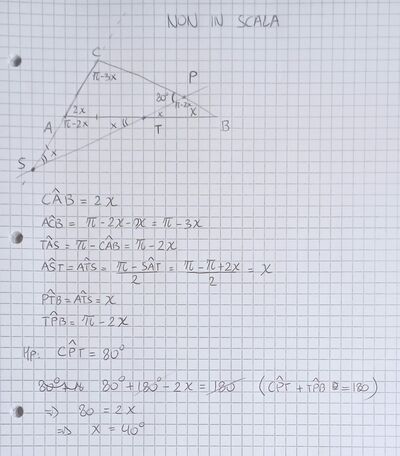 NON IN SCALA
C
π-3x
P
80°
π-2x
2x
A
π-2x
x
x
x
B
T
S
x
CÂB = 2x
AĈB = π-2x-x = π-3x
TÂS = π-CÂB = π-2x
AŜT = AT̂S = π-SÂT / 2 = π-π+2x / 2 = x
PT̂B = AT̂S = x
TP̂B = π-2x
Hp. CP̂T = 80°
80°+180°-2x = 180 (CP̂T + TP̂B = 180)
=> 80 = 2x
=> x = 40°